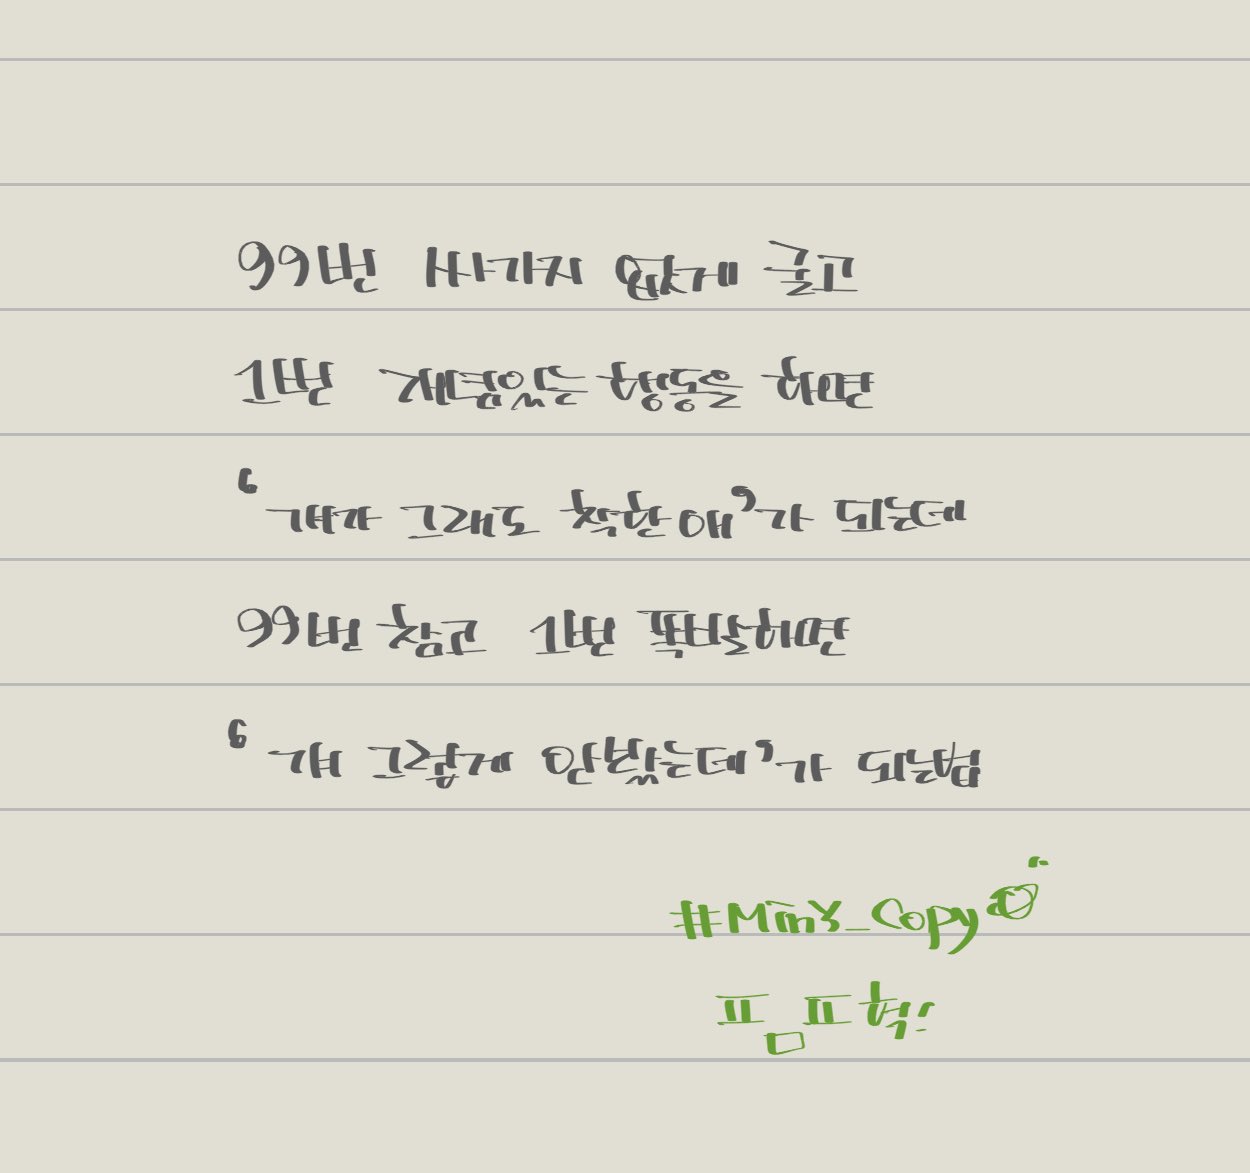 99번 싸가지 없게 굴고
1번 개념있는 행동을 하면
'걔가 그래도 착한애'가 되는데
99번 참고 1번 폭발하면
'걔 그렇게 안봤는데'가 되는법
#Min's_Copy